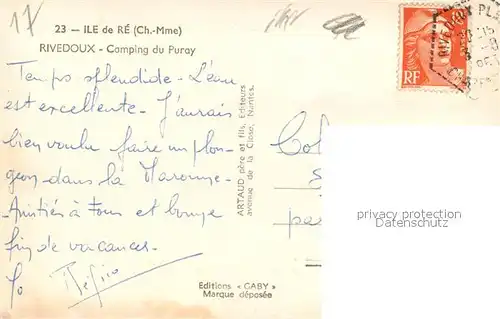 17
23 — ILE de RÉ (Ch.-Mme)
RIVEDOUX - Camping du Puray
Temps splendide - L'eau
est excellente - J'aurais
bien voulu faire un plon-
geon dans la
Amitiés à tous et bonne
fin de vacances -
ARTAUD père et fils, Editeurs
avenue de la Close, Nantes.
RF
Col
pa
privacy protection
www.delcampe.net
Editions « GABY »
Marque déposée